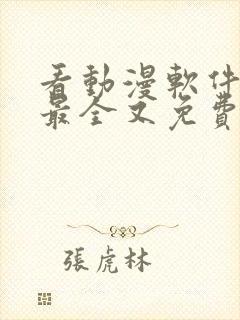 看動漫軟件
最全又免費
張虎林